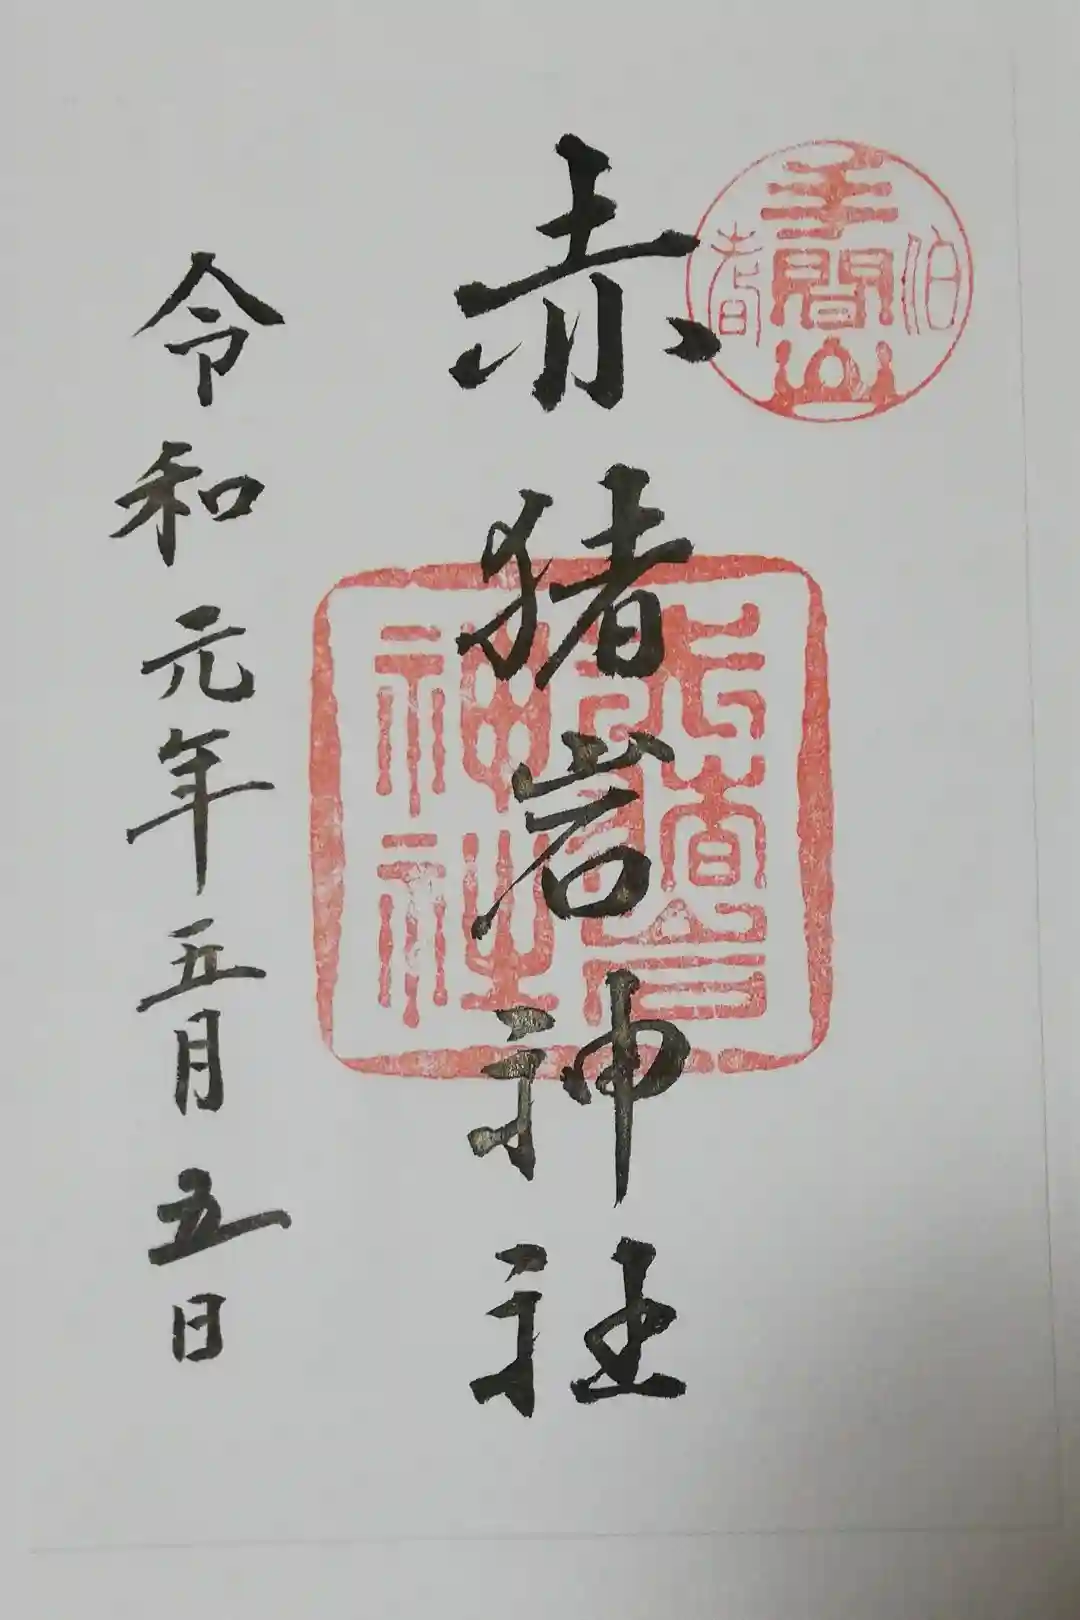 伯耆
手間山
赤猪岩神社
赤猪岩神社
令和元年五月五日